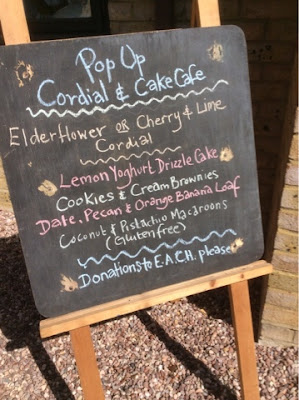 Pop Up
Cordial & Cake Cafe
Elderflower OR Cherry & Lime
Cordial
Lemon Yoghurt Drizzle Cake
Cookies & Cream Brownies
Date, Pecan & Orange Banana Loaf
Coconut & Pistachio Macaroons
(Gluten free)
Donations to E.A.C.H. please